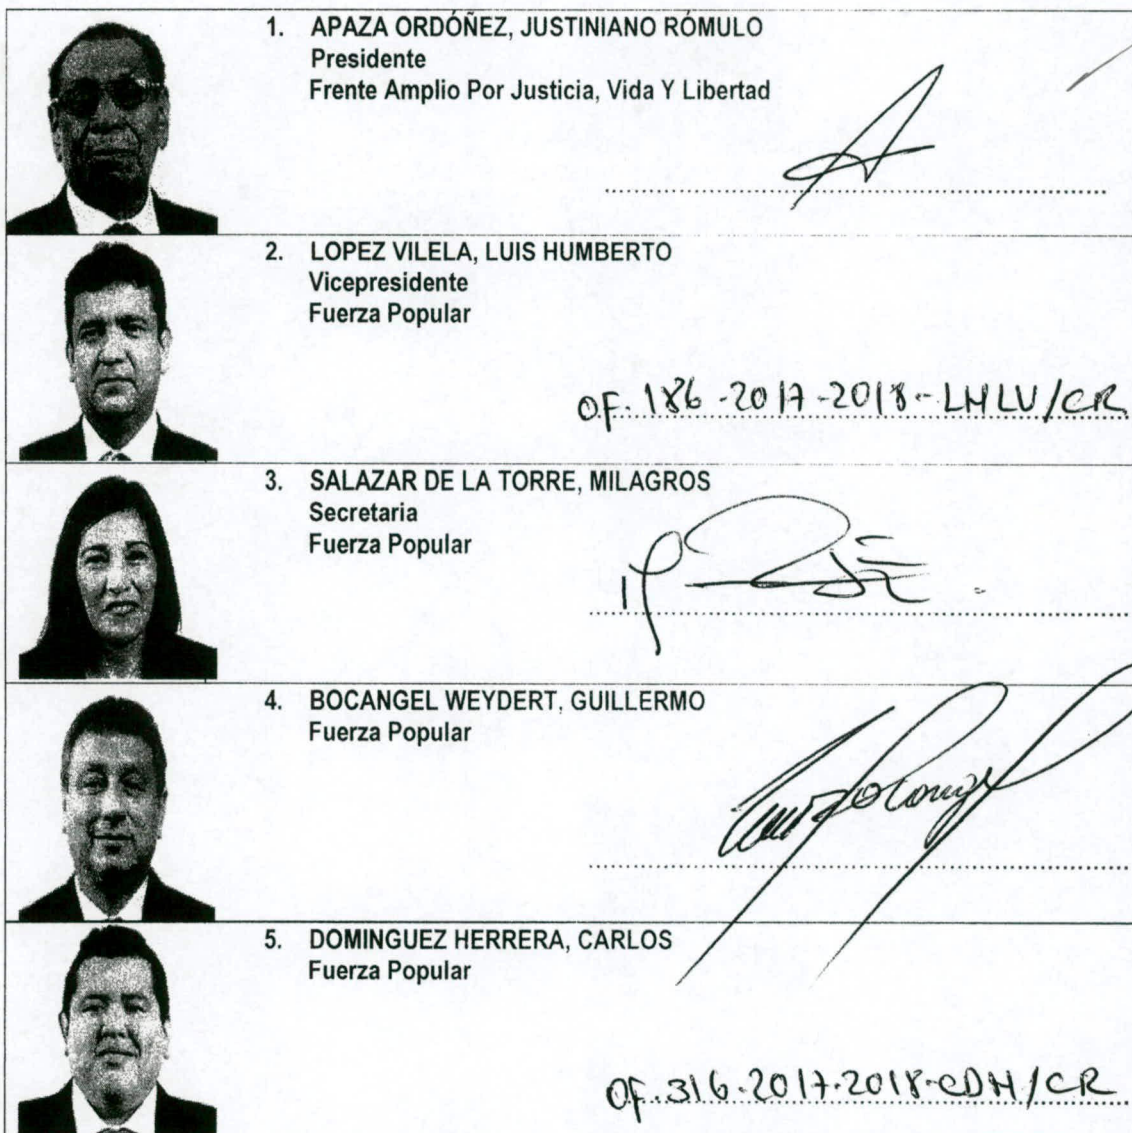 1. APAZA ORDÓÑEZ, JUSTINIANO RÓMULO
Presidente
Frente Amplio Por Justicia, Vida Y Libertad
2. LOPEZ VILELA, LUIS HUMBERTO
Vicepresidente
Fuerza Popular
OF. 186-2017-2018-LHLV/CR
3. SALAZAR DE LA TORRE, MILAGROS
Secretaria
Fuerza Popular
4. BOCANGEL WEYDERT, GUILLERMO
Fuerza Popular
5. DOMINGUEZ HERRERA, CARLOS
Fuerza Popular
OF. 316-2017-2018-CDH/CR